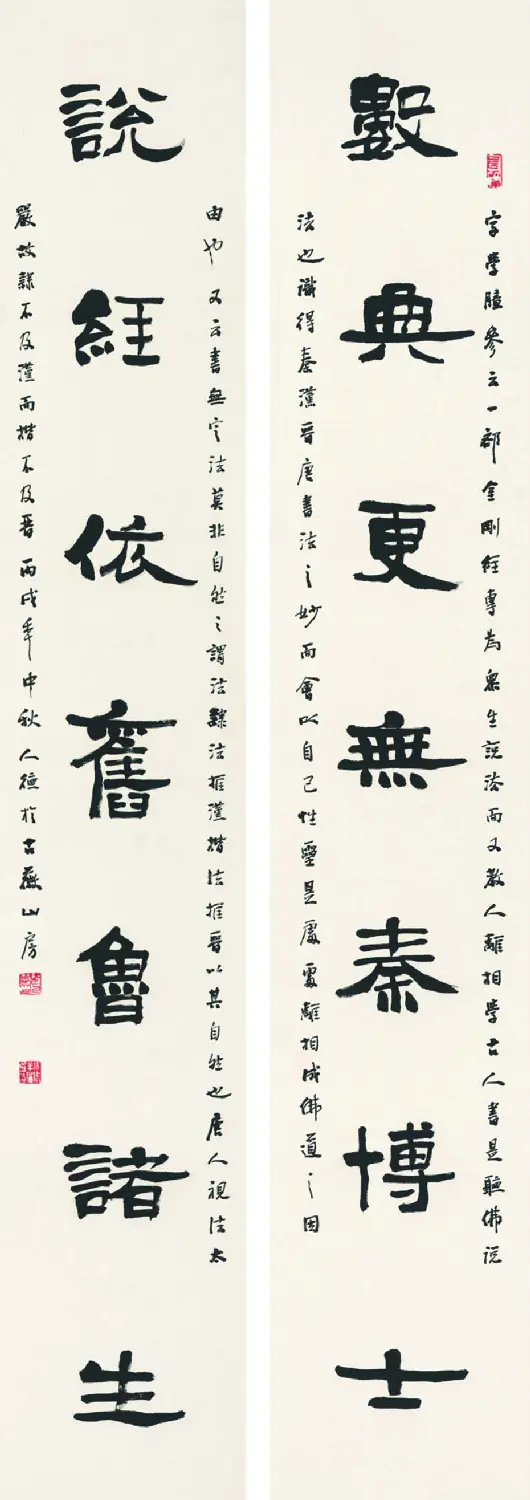 數典更無秦博士
字學臆參云一部金剛經專為眾生說法而又教人離相學古人書是聽佛說
法也識得秦漢晉唐書法之妙而會以自己性靈是處處離相成佛道之因
說經依舊魯諸生
由也又云書無定法莫非自然之謂法隸法推漢楷法推晉以其自然也唐人視法太
嚴故隸不及漢而楷不及晉丙戌年中秋人德於古薇山房